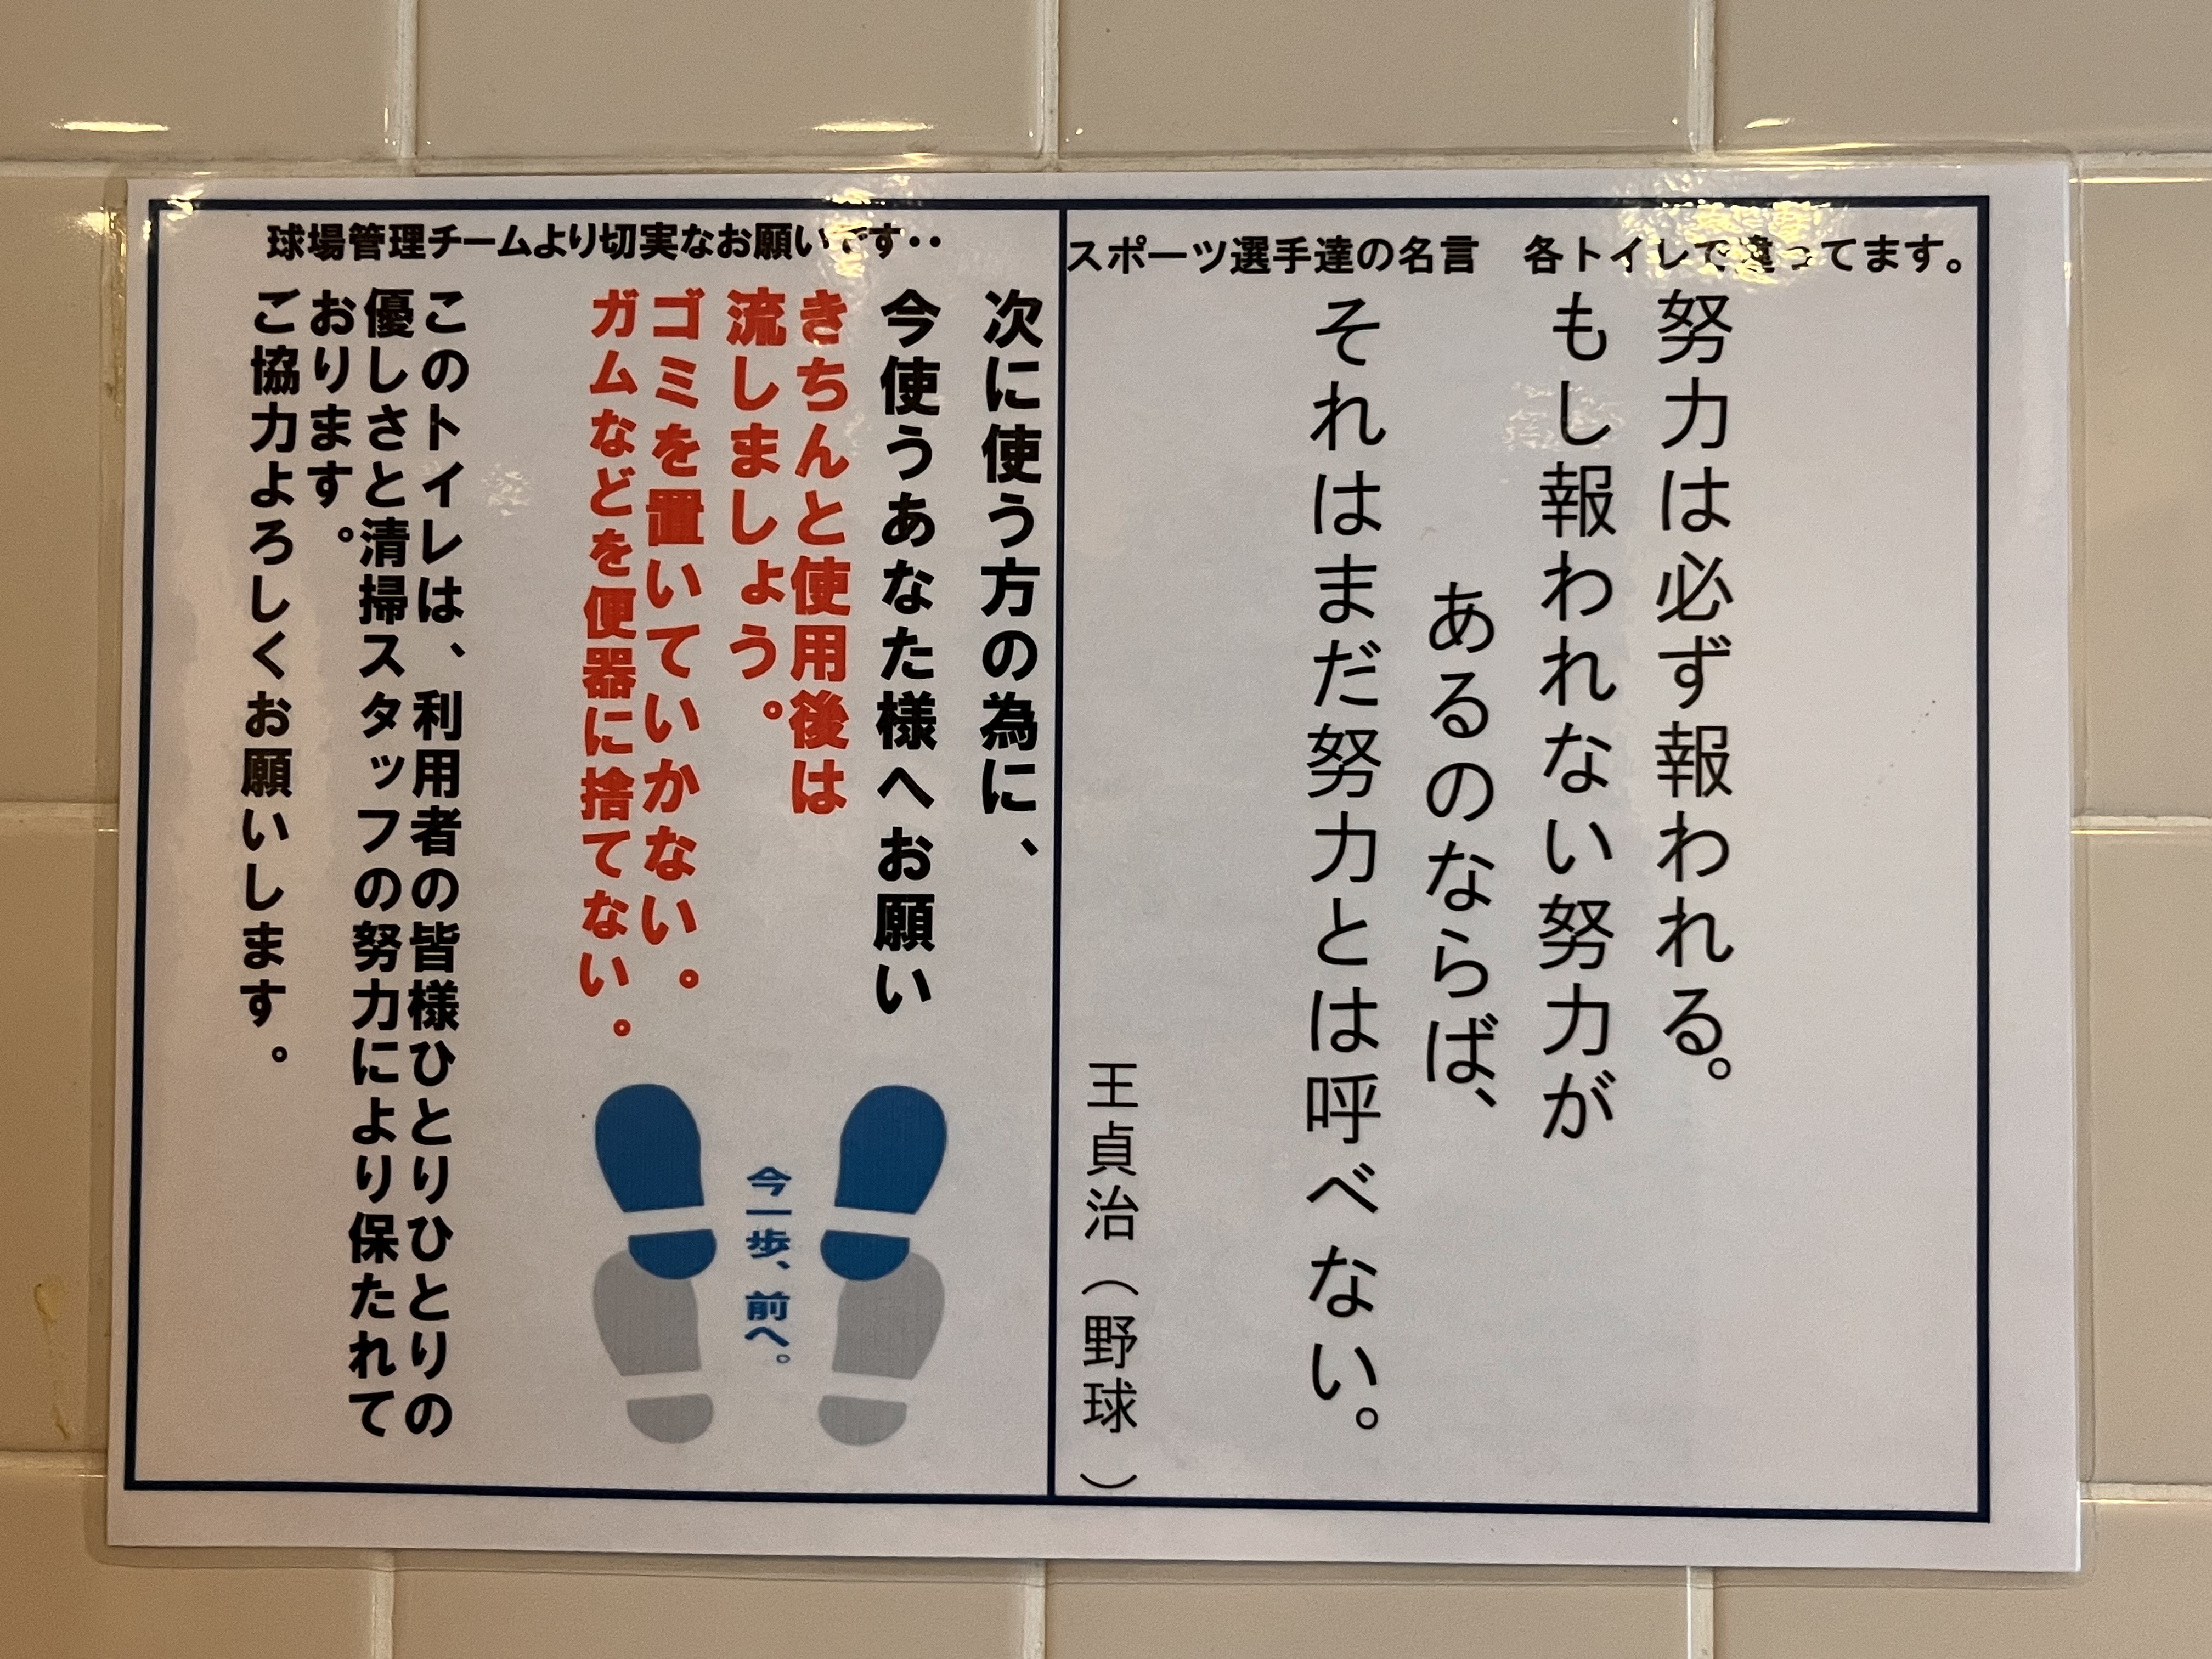 スポーツ選手達の名言　各トイレで違ってます。
努力は必ず報われる。
もし報われない努力が
あるのならば、
それはまだ努力とは呼べない。
王貞治（野球）
球場管理チームより切実なお願いです‥
次に使う方の為に、
今使うあなた様へお願い
きちんと使用後は
流しましょう。
ゴミを置いていかない。
ガムなどを便器に捨てない。
今一歩、前へ。
このトイレは、利用者の皆様ひとりひとりの
優しさと清掃スタッフの努力により保たれて
おります。
ご協力よろしくお願いします。